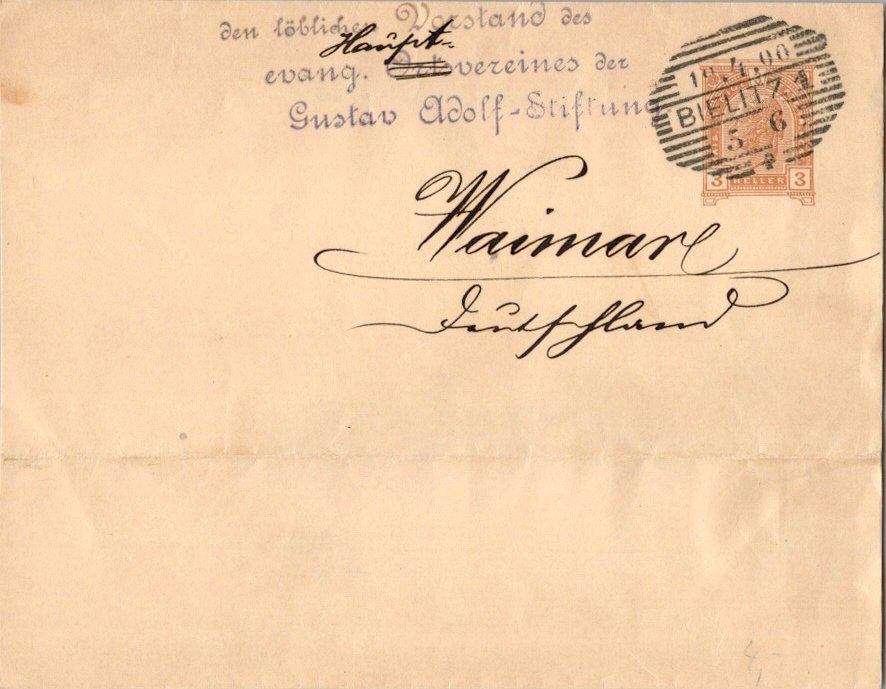 den löblichen Vorstand des
Haupt-
evang. Ortsvereines der
Gustav Adolf-Stiftung
18.4.00
BIELITZ 1
5 6
3 HELLER 3
Waimar
Deutschland
4,-